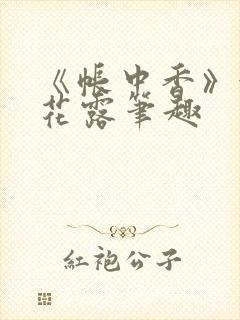 《帳中香》
花露筆趣
紅袍公子